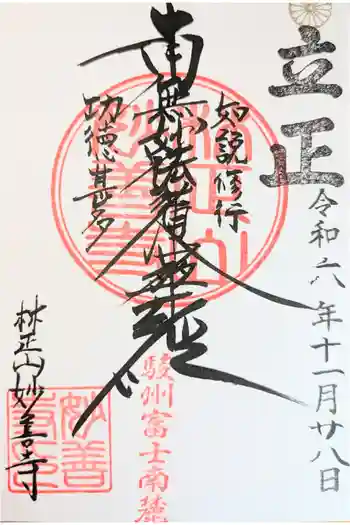 立正
令和六年十一月廿八日
如説修行
南無妙法蓮華経
功徳甚多
駿州富士南麓
林正山妙善寺
妙善